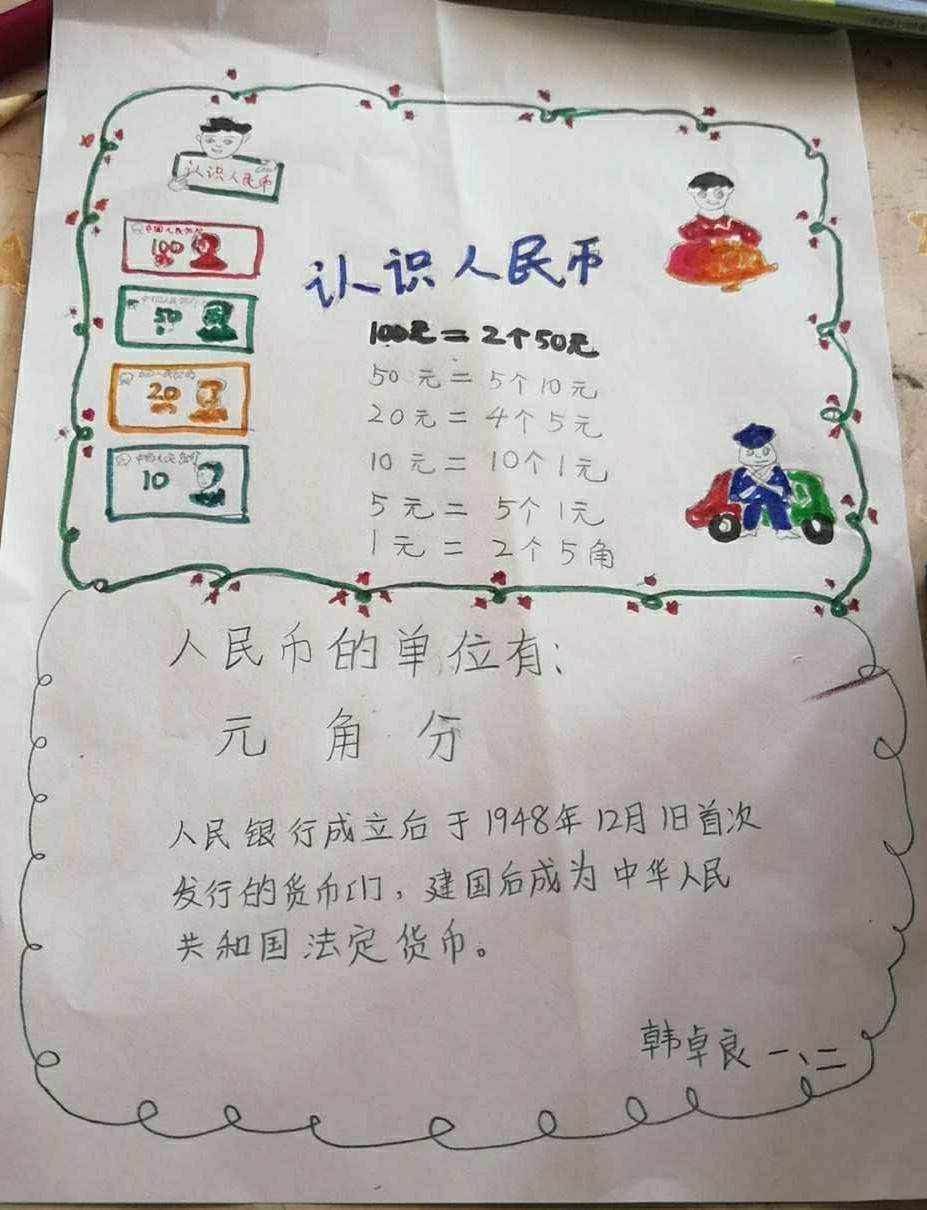 认识人民币
中国人民银行
100
50
20
10
中国人民银行
认识人民币
100元=2个50元
50元=5个10元
20元=4个5元
10元=10个1元
5元=5个1元
1元=2个5角
人民币的单位有:
元 角 分
人民银行成立后于1948年12月1日首次
发行的货币,建国后成为中华人民
共和国法定货币。
韩卓良 一、二